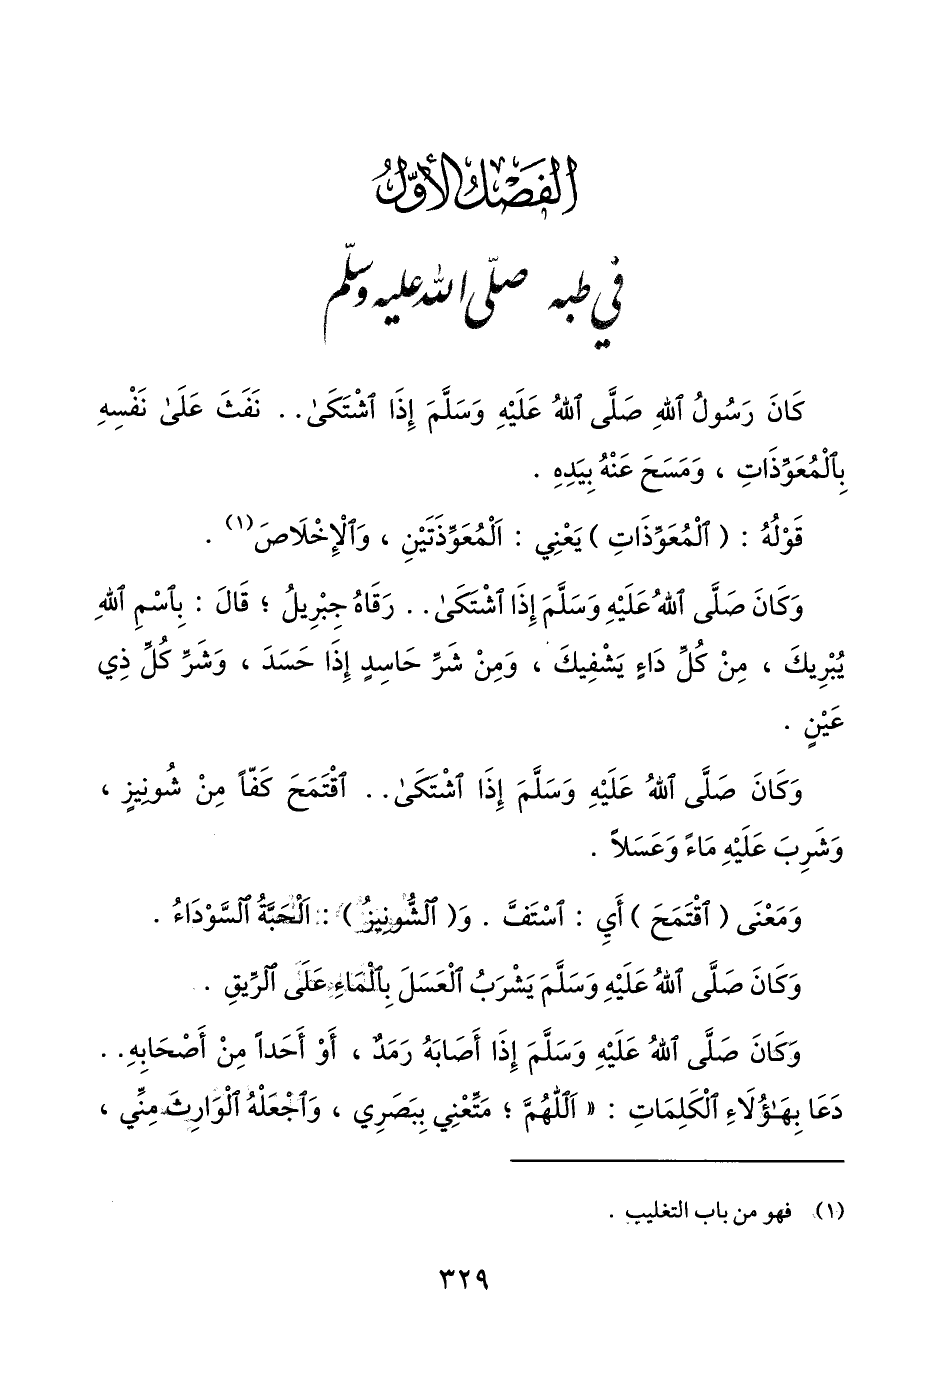 الفَصْلُ الأَوَّلُ
في طبه صلّى الله عليه وسلّم
كَانَ رَسُولُ ٱللهِ صَلَّى ٱللهُ عَلَيْهِ وَسَلَّمَ إِذَا ٱشْتَكَىٰ.. نَفَثَ عَلَىٰ نَفْسِهِ
بِٱلْمُعَوِّذَاتِ ، وَمَسَحَ عَنْهُ بِيَدِهِ .
قَوْلُهُ : ( ٱلْمُعَوِّذَاتِ ) يَعْنِي : ٱلْمُعَوِّذَتَيْنِ ، وَٱلْإِخْلَاصَ(١) .
وَكَانَ صَلَّى ٱللهُ عَلَيْهِ وَسَلَّمَ إِذَا ٱشْتَكَىٰ.. رَقَاهُ جِبْرِيلُ ؛ قَالَ : بِٱسْمِ ٱللهِ
يُبْرِيكَ ، مِنْ كُلِّ دَاءٍ يَشْفِيكَ ، وَمِنْ شَرِّ حَاسِدٍ إِذَا حَسَدَ ، وَشَرِّ كُلِّ ذِي
عَيْنٍ .
وَكَانَ صَلَّى ٱللهُ عَلَيْهِ وَسَلَّمَ إِذَا ٱشْتَكَىٰ.. ٱقْتَمَحَ كَفّاً مِنْ شُونِيزٍ ،
وَشَرِبَ عَلَيْهِ مَاءً وَعَسَلاً .
وَمَعْنَى ( ٱقْتَمَحَ ) أَيِ : ٱسْتَفَّ . وَ( ٱلشُّونِيزُ ) : ٱلْحَبَّةُ ٱلسَّوْدَاءُ .
وَكَانَ صَلَّى ٱللهُ عَلَيْهِ وَسَلَّمَ يَشْرَبُ ٱلْعَسَلَ بِٱلْمَاءِ عَلَى ٱلرِّيقِ .
وَكَانَ صَلَّى ٱللهُ عَلَيْهِ وَسَلَّمَ إِذَا أَصَابَهُ رَمَدٌ ، أَوْ أَحَداً مِنْ أَصْحَابِهِ..
دَعَا بِهَـٰؤُلَاءِ ٱلْكَلِمَاتِ : « ٱللَّهُمَّ ؛ مَتِّعْنِي بِبَصَرِي ، وَٱجْعَلْهُ ٱلْوَارِثَ مِنِّي ،
(١) فهو من باب التغليب .
٣٢٩